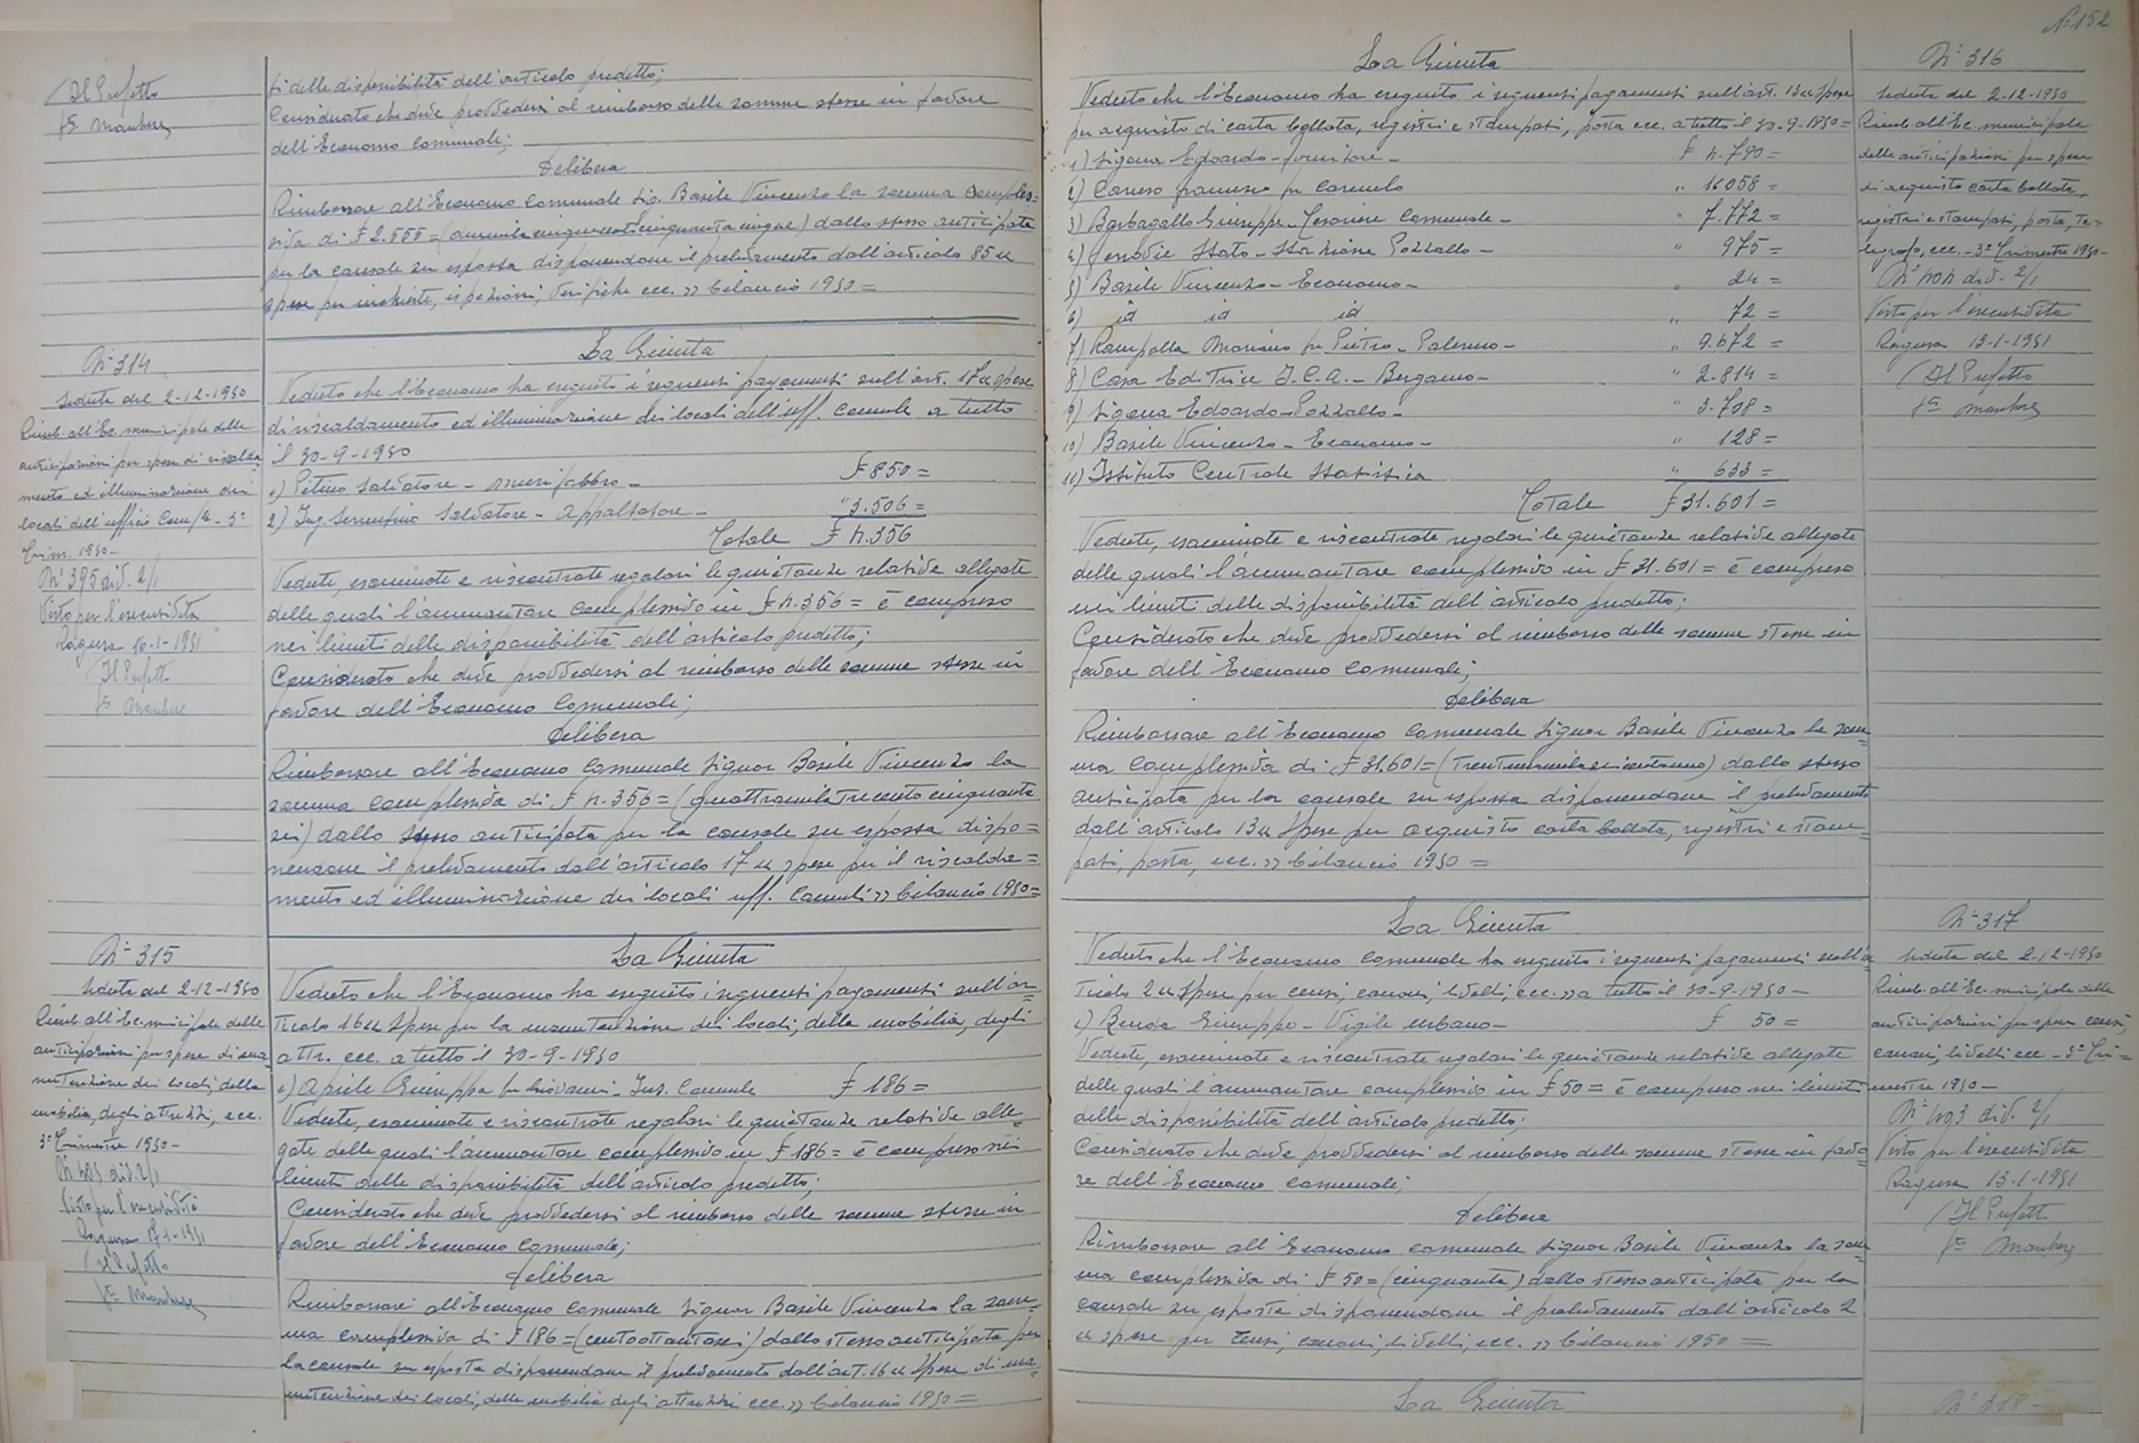 (Il Prefetto
ti delle disponibilità dell'articolo predetto;
Considerato che deve provvedersi al rimborso delle somme stesse in favore
dell'Economo Comunale;
Delibera
Rimborsare all'Economo Comunale Sig. Basile Vincenzo la somma comples=
siva di £ 2.555=(duemilacinquecentocinquantacinque) dallo stesso anticipata
per la causale su esposta disponendone il prelevamento dall'articolo 85 "
spese per inchieste, ispezioni, verifiche ecc. " bilancio 1950=
N° 314
Seduta del 2-12-1950
Rimb. all'Ec. municipale delle
anticipazioni per spese di riscalda
mento ed illuminazione dei
locali dell'ufficio Com/le - 3°
Trim. 1950-
N° 395 div. 2/1
Visto per l'esecutività
Ragusa 16-1-1951
Il Prefetto
La Giunta
Veduto che l'Economo ha eseguito i seguenti pagamenti sull'art. 17 " spese
di riscaldamento ed illuminazione dei locali dell'uff. Comunale a tutto
il 30-9-1950
1) Pitino Salvatore - £ 850=
2) Ing. Sorrentino Salvatore - Appaltatore - " 3.506=
Totale £ 4.356
Vedute, esaminate e riscontrate regolari le quietanze relative allegate
delle quali l'ammontare complessivo in £ 4.356= è compreso
nei limiti delle disponibilità dell'articolo predetto;
Considerato che deve provvedersi al rimborso delle somme stesse in
favore dell'Economo Comunale;
Delibera
Rimborsare all'Economo Comunale Signor Basile Vincenzo la
somma complessiva di £ 4.356=(quattromilatrecentocinquanta
sei) dallo stesso anticipata per la causale su esposta dispo=
nendone il prelevamento dall'articolo 17 " spese per il riscalda=
mento ed illuminazione dei locali uff. Comunali " bilancio 1950=
N° 315
Seduta del 2-12-1950
Rimb. all'Ec. municipale delle
anticipazioni per spese di ma
nutenzione dei locali, della
mobilia, degli attrezzi, ecc.
3° Trimestre 1950-
div. 2/1
Visto per l'esecutività
Ragusa
(Il Prefetto
La Giunta
Veduto che l'Economo ha eseguito i seguenti pagamenti sull'ar=
ticolo 16 " Spese per la manutenzione dei locali, della mobilia, degli
attr. ecc. a tutto il 30-9-1950
1) Aprile Giuseppe fu Giovanni - Ins. Comunale £ 186=
Vedute, esaminate e riscontrate regolari le quietanze relative alle=
gate delle quali l'ammontare complessivo in £ 186= è compreso nei
limiti delle disponibilità dell'articolo predetto;
Considerato che deve provvedersi al rimborso delle somme stesse in
favore dell'Economo Comunale;
Delibera
Rimborsare all'Economo Comunale Signor Basile Vincenzo la som=
ma complessiva di £ 186=(centottantasei) dallo stesso anticipata per
la causale su esposta disponendone il prelevamento dall'art. 16 " Spese di ma=
nutenzione dei locali, delle mobilia degli attrezzi ecc. " bilancio 1950=
N° 152
La Giunta
Veduto che l'Economo ha eseguito i seguenti pagamenti sull'art. 13 " Spese
per acquisto di carta bollata, registri e stampati, posta ecc. a tutto il 30-9-1950=
1) Sigona Edoardo - fornitore - £ 4.790=
2) Caruso Francesco fu Carmelo " 1.058=
3) Barbagallo Giuseppe - Tesoriere Comunale - " 7.772=
4) Ferrovie Stato - Stazione Pozzallo - " 975=
5) Basile Vincenzo - Economo - " 24=
6) id id id " 72=
7) Rampolla Mariano fu Pietro - Palermo - " 9.672=
8) Casa Editrice I.C.A. - Bergamo - " 2.814=
9) Sigona Edoardo - Pozzallo - " 3.708=
10) Basile Vincenzo - Economo - " 128=
11) Istituto Centrale Statistica " 633=
Totale £ 31.601=
Vedute, esaminate e riscontrate regolari le quietanze relative allegate
delle quali l'ammontare complessivo in £ 31.601= è compreso
nei limiti delle disponibilità dell'articolo predetto;
Considerato che deve provvedersi al rimborso delle somme stesse in
favore dell'Economo Comunale;
Delibera
Rimborsare all'Economo Comunale Signor Basile Vincenzo la som=
ma complessiva di £ 31.601=(trentunomilaseicentouno) dallo stesso
anticipata per la causale su esposta disponendone il prelevamento
dall'articolo 13 " Spese per acquisto carta bollata, registri e stam=
pati, posta, ecc. " bilancio 1950=
N° 316
Seduta del 2-12-1950
Rimb. all'Ec. municipale
delle anticipazioni per spese
di acquisto carta bollata,
registri e stampati, posta, te=
legrafo, ecc. - 3° Trimestre 1950-
N° 404 div. 2/1
Visto per l'esecutività
Ragusa 13-1-1951
(Il Prefetto
La Giunta
Veduto che l'Economo Comunale ha eseguito i seguenti pagamenti sull'ar
ticolo 2 " Spese per censi, canoni, livelli, ecc. " a tutto il 30-9-1950-
1) Buda Giuseppe - Vigile urbano - £ 50=
Vedute, esaminate e riscontrate regolari le quietanze relative allegate
delle quali l'ammontare complessivo in £ 50= è compreso nei limiti
delle disponibilità dell'articolo predetto;
Considerato che deve provvedersi al rimborso delle somme stesse in favo=
re dell'Economo Comunale;
Delibera
Rimborsare all'Economo Comunale Signor Basile Vincenzo la som=
ma complessiva di £ 50=(cinquanta) dallo stesso anticipata per la
causale su esposta disponendone il prelevamento dall'articolo 2
" spese per censi, canoni, livelli, ecc. " bilancio 1950=
N° 317
Seduta del 2-12-1950
Rimb. all'Ec. municipale delle
anticipazioni per spese censi,
canoni, livelli ecc - 3° Tri=
mestre 1950-
N° 403 div. 2/1
Visto per l'esecutività
Ragusa 13-1-1951
(Il Prefetto
La Giunta
N° 318-